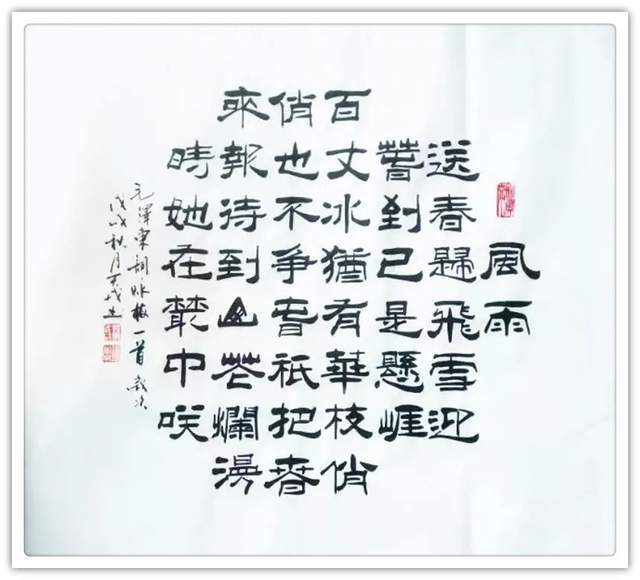 風雨
送春歸飛雪迎
萅到已是懸崖
百丈冰猶有華枝俏
俏也不爭旾祇把春
來報待到山花爛漫
時她在叢中咲
毛澤東詞咏梅一首 歲次
戊戌秋月